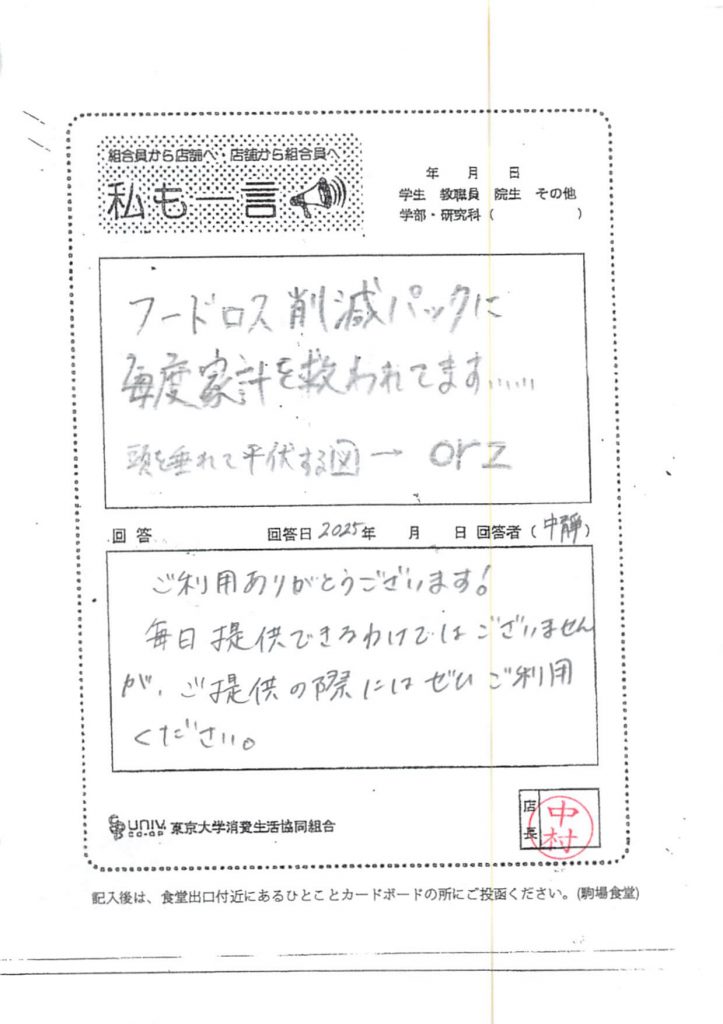 組合員から店舗へ・店舗から組合員へ
私も一言
年 月 日
学生 教職員 院生 その他
学部・研究科（ ）
フードロス削減パックに
毎度家計を救われてます……
頭を垂れて平伏する図→ orz
回答 回答日2025年 月 日 回答者（中静）
ご利用ありがとうございます!
毎日提供できるわけではございません
が、ご提供の際にはぜひご利用
ください。
UNIV. CO-OP 東京大学消費生活協同組合
店長 中村
記入後は、食堂出口付近にあるひとことカードボードの所にご投函ください。(駒場食堂)